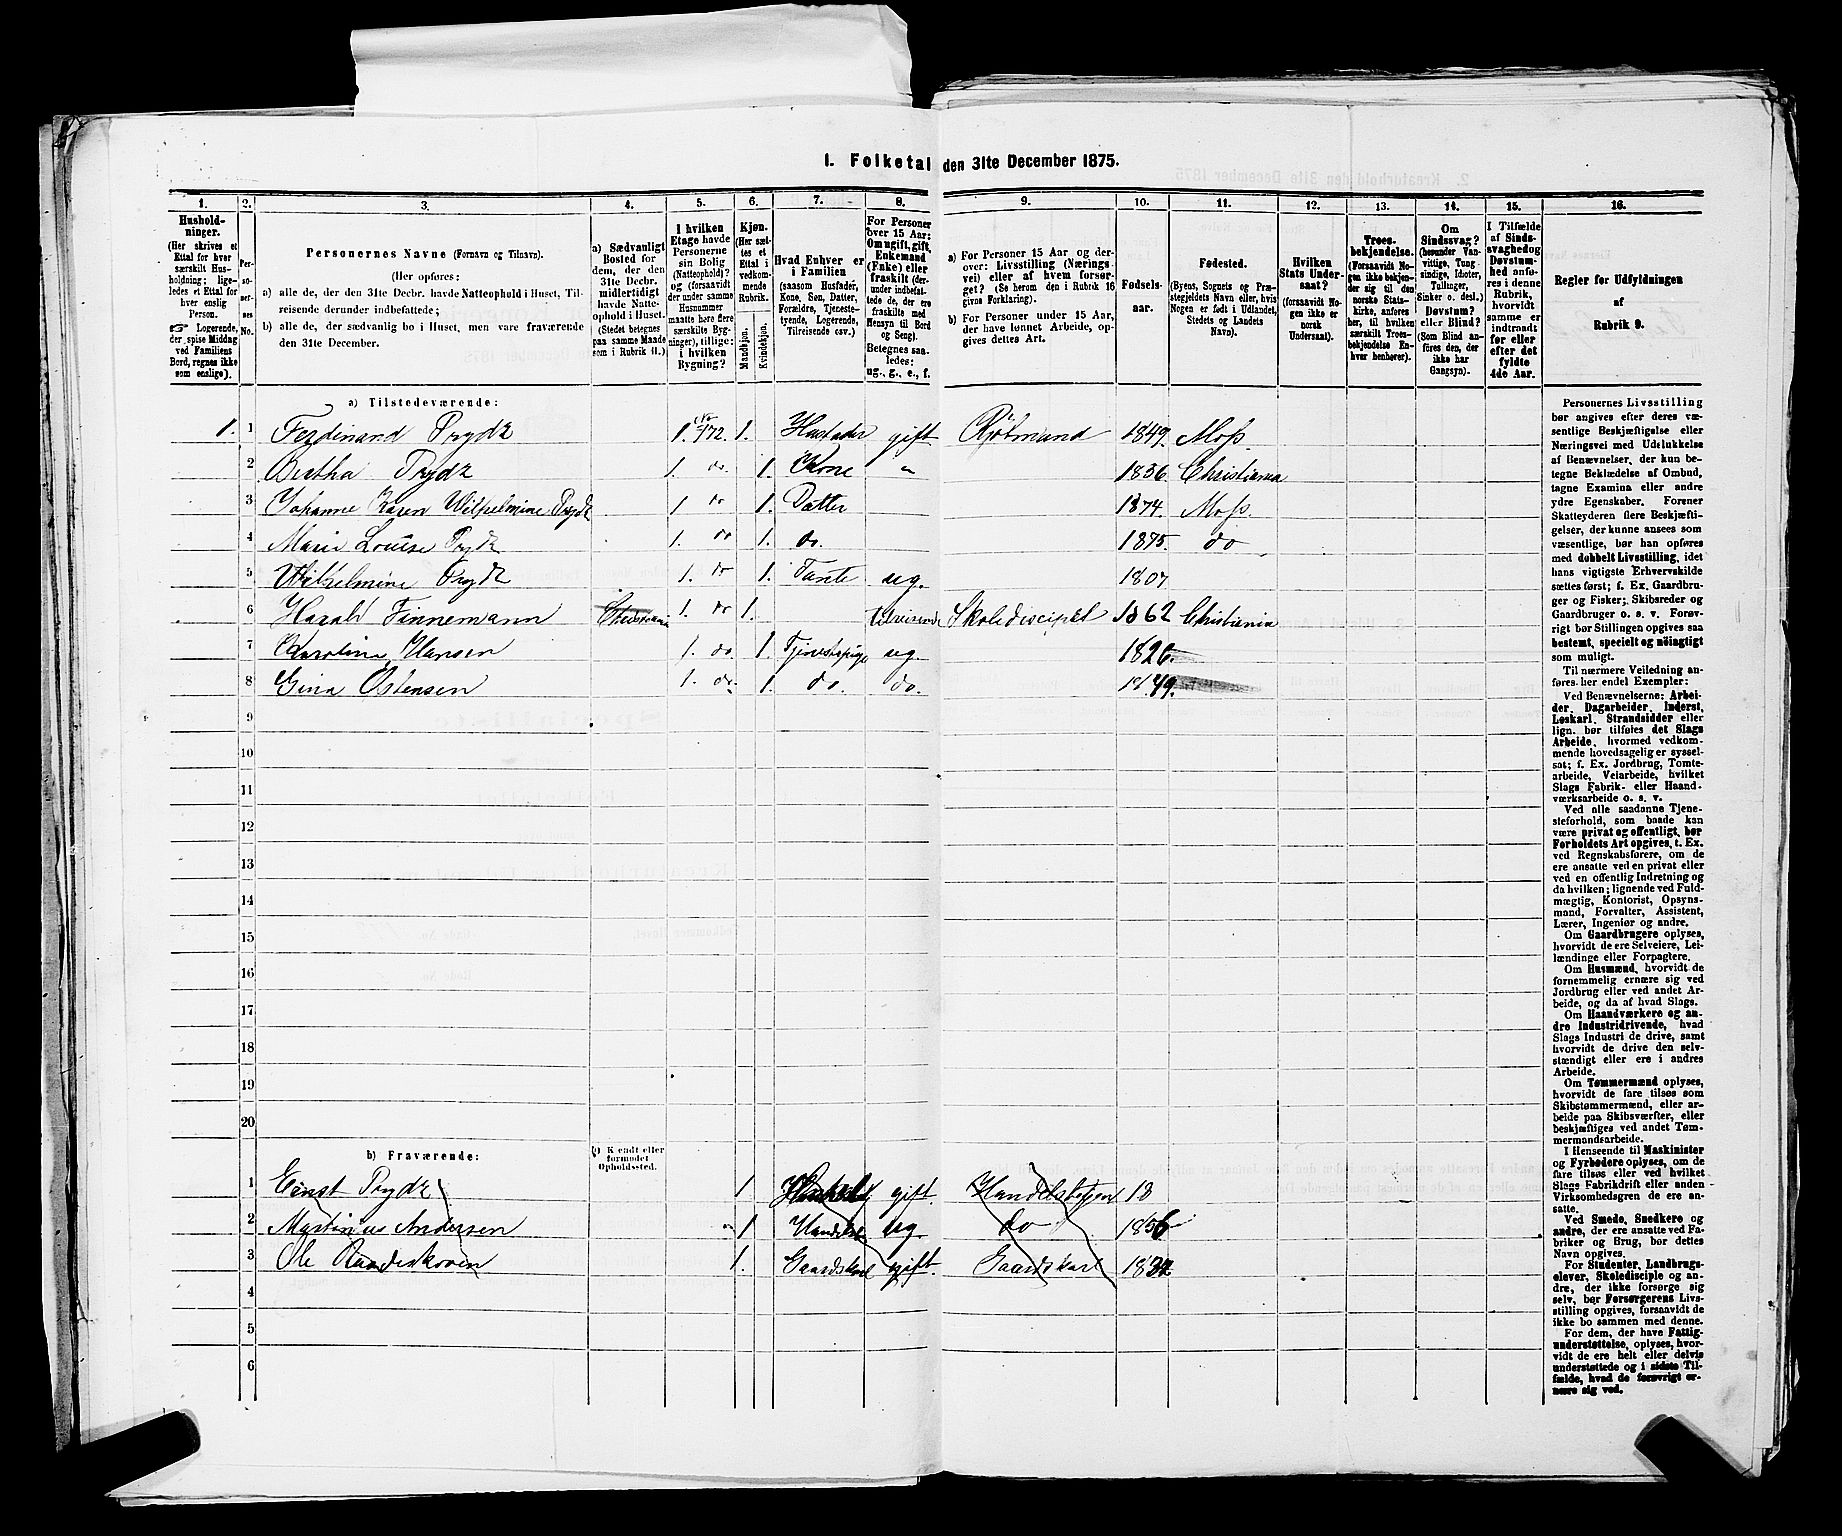 1. Folketal den 31te December 1875.
1. 2. 3. 4. 5. 6. 7. 8. 9. 10. 11. 12. 13. 14. 15. 16.
Hushold-
ninger.
(Her skrives et
Ettal for hver
særskilt Hus-
holdning; lige-
ledes et Ettal for
hver enslig
Person.
☞ Logerende,
der spise Middag
ved Familiens
Bord, regnes ikke
som enslige).
Per-
so-
ner-
nes
No.
Personernes Navne (Fornavn og Tilnavn).
(Her opføres:
a) alle de, der den 31te Decbr. havde Natteophold i Huset, Til-
reisende derunder indbefattede;
b) alle de, der sædvanlig bo i Huset, men vare fraværende
den 31te December.
a) Sædvanligt
Bosted for
dem, der den
31te Decbr.
midlertidigt
havde Natte-
ophold i Huset.
(Stedet betegnes
paa samme Maade
som i Rubrik 11.)
I hvilken
Etage havde
Personerne
sin Bolig
(Natteophold)?
og (forsaavidt
der under samme
Husnummer
maatte høre flere
særskilte Byg-
ninger), tillige:
i hvilken
Bygning?
Kjøn.
(Her sæt-
tes et
Ettal i
vedkom-
mende
Rubrik.
Mandkjøn.
Kvindekjøn.
Hvad Enhver er
i Familien
(saasom Husfader,
Kone, Søn, Datter,
Forældre, Tjeneste-
tyende, Logerende,
Tilreisende osv.)
For Personer
over 15 Aar:
Om ugift, gift,
Enkemand
(Enke) eller
fraskilt (der-
under indbefat-
tede de, der ere
fraskilte med
Hensyn til Bord
og Seng).
Betegnes saa-
ledes:
ug., g., e., f.
a) For Personer 15 Aar og der-
over: Livsstilling (Nærings-
vei) eller af hvem forsør-
get? (Se herom den i Rubrik 16
givns Forklaring).
b) For Personer under 15 Aar,
der have lønnet Arbeide, op-
gives dettes Art.
Fødsels-
aar.
Fødested.
(Byens, Sognets og Præ-
stegjeldets Navn eller, hvis
Nogen er født i Udlandet,
Stedets og Landets
Navn).
Hvilken
Stats Under-
saat?
(forsaavidt No-
gen ikke er
norsk
Undersaat).
Troes-
bekjendelse.
(Forsaavidt No-
gen ikke bekjen-
der sig til den
norske Stats-
kirke, anføres
her, til hvilken
særskilt Troes-
bekjendelse En-
hver henhører).
Om
Sindssvag?
(herunder Van-
vittige, Tung-
sindige, Idioter,
Tullinger,
Sinker o. desl.)
Døvstum?
eller Blind?
(Som Blind an-
føres den, der
ikke har
Gangsyn).
I Tilfælde
af Sinds-
svaghed og
Døvstum-
hed anfø-
res i denne
Rubrik,
hvorvidt
samme er
indtraadt
før eller
efter det
fyldte
4de Aar.
Regler for Udfyldningen
af
Rubrik 9.
a) Tilstedeværende:
1. 1 Ferdinand Prydz 1. No 172. 1. Husfader gift. Kjøbmand 1849. Moss
2 Bertha Prydz 1. do. 1. Kone " 1836. Christiania
3 Johanne Karen Wilhelmine Prydz 1 do 1. Datter 1874. Moss.
4 Marie Louise Prydz 1. do 1. do. 1875. do
5 Wilhelmine Prydz 1. do 1. Tante ug. 1807
6 Harald Finnemann Christiania 1. do 1. Tilreisende Skolediscipel 1862 Christiania
7 Karolina Hansen 1. do. 1. Tjenestepige ug. 1826.
8 Gina Ostensen 1. do. 1. do. do. 1849.
9
10
11
12
13
14
15
16
17
18
19
20
b) Fraværende:
b) Kendt eller
formodet
Opholdssted.
1 Ernst Prydz 1 gift. 18
2 Martinius Andersen 1 ug. do 1856
3 Ole 1. Gaardskarl gift. Gaardskarl
4
5
6
Personernes Livsstilling
bør angives efter deres væ-
sentlige Beskjæftigelse eller
Næringsvei med Udelukkelse
af Benævnelser, der kun be-
tegne Beklædelse af Ombud,
tagne Examina eller andre
ydre Egenskaber. Forener
Skatteyderen flere Beskjæfti-
gelser, der kunne ansees som
væsentlige, bør han opføres
med dobbelt Livsstilling, idet
hans vigtigste Erhvervskilde
sættes først; f. Ex. Gaardbru-
ger og Fisker; Skibsreder og
Gaardbruger o. s. v. Forøv-
rigt bør Stillingen opgives saa
bestemt, specielt og nöiagtigt
som muligt.
Til nærmere Veiledning an-
føres her endel Exempler:
Ved Benævnelserne: Arbei-
der, Dagarbeider, Inderst,
Løskarl, Strandsidder eller
lign. bør tilføies det Slags
Arbeide, hvormed vedkom-
mende hovedsagelig er syssel-
sat; f. Ex. Jordbrug, Tomte-
arbeide, Veiarbeide, hvilket
Slags Fabrik- eller Haand-
værksarbeide o. s. v.
Ved alle saadanne Tjene-
steforhold, som baade kan
være privat og offentligt, bør
Forholdets Art opgives, t. Ex.
ved Regnskabsførere, om de
ere ansatte ved en privat eller
ved en offentlig Indretning og
da hvilken; lignende ved Fuld-
mægtig, Kontorist, Opsyns-
mand, Forvalter, Assistent,
Lærer, Ingeniør og andre.
Om Gaardbrugere oplyses,
hvorvidt de ere Selveiere, Lei-
lændinge eller Forpagtere.
Om Husmænd, hvorvidt de
fornemmelig ernære sig ved
Jordbrug eller ved andet Ar-
beide, og da af hvad Slags.
Om Haandværkere og an-
dre Industridrivende, hvad
Slags Industri de drive, samt
hvorvidt de drive den selv-
stændigt eller ere i andres
Arbeide.
Om Tømmermænd oplyses,
hvorvidt de fare tilsøs som
Skibstømmermænd, eller ar-
beide paa Skibsværfter, eller
beskjæftiges ved andet Tøm-
mermandsarbeide.
I Henseende til Maskinister
og Fyrbødere oplyses, om de
fare tilsøs eller ved hvilket
Slags Fabrikdrift eller anden
Virksomhedsgren de ere an-
satte.
Ved Smede, Snedkere og
andre, der ere ansatte ved Fa-
briker og Brug, bør dettes
Navn opgives.
For Studenter, Landbrugs-
elever, Skoledisciple og an-
dre, der ikke forsørge sig
selv, bør Forsørgerens Livs-
stilling opgives, forsaavidt de
ikke bo sammen med denne.
For dem, der have Fattig-
understøttelse, oplyses, hvor-
vidt de ere helt eller delvis
understøttede og i sidste Til-
fælde, hvad de forøvrigt er-
nære sig ved.